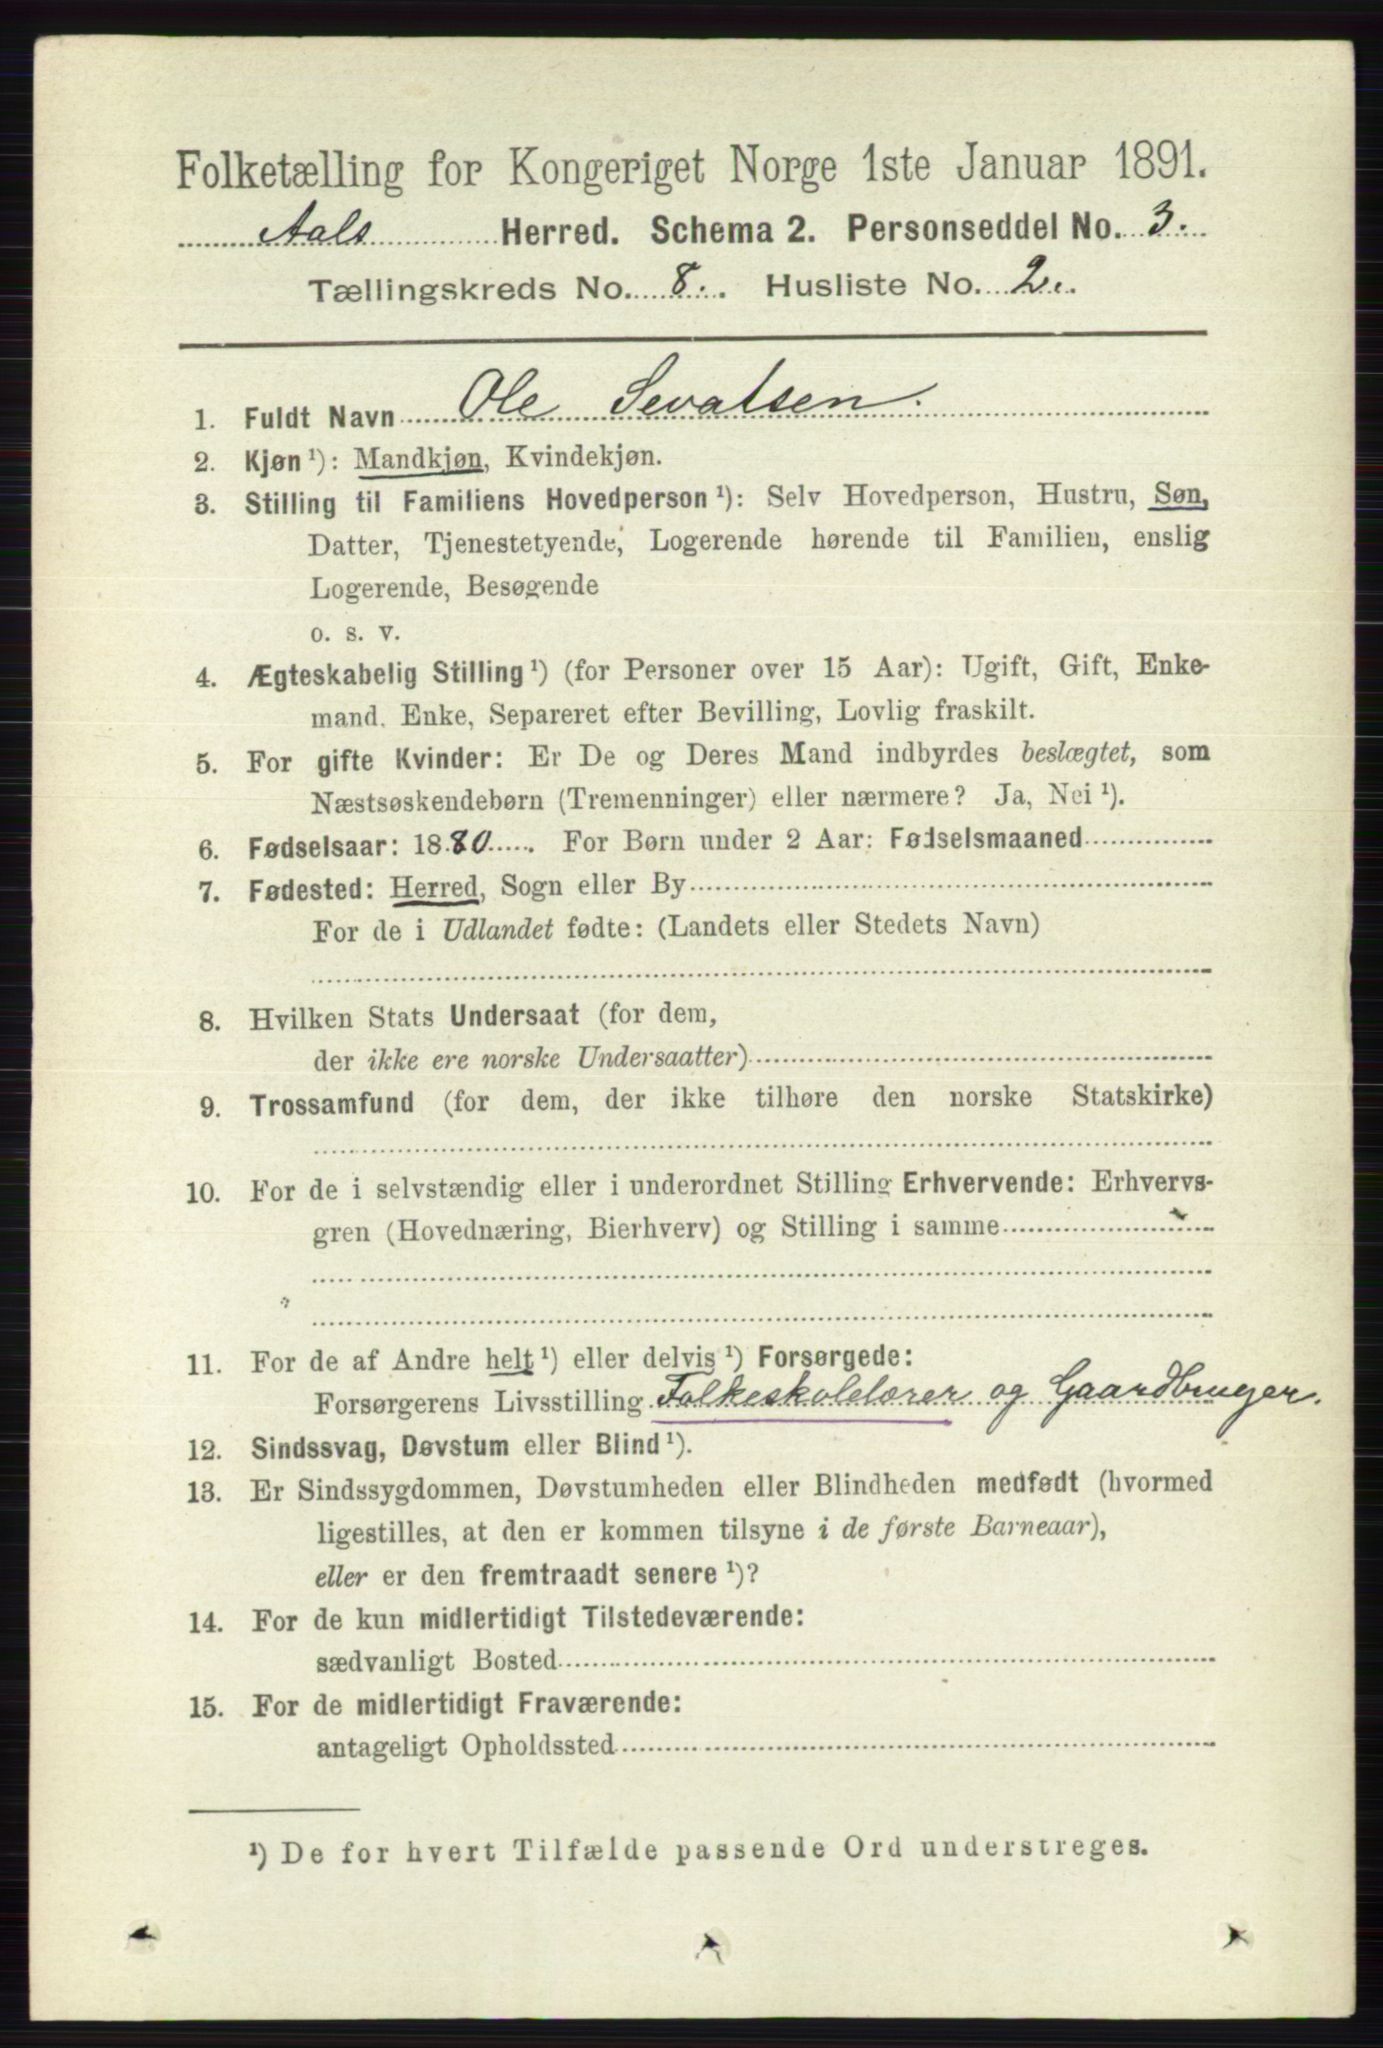 Folketælling for Kongeriget Norge 1ste Januar 1891.
Aals Herred. Schema 2. Personseddel No. 3.
Tællingskreds No. 8. Husliste No. 2.
1. Fuldt Navn Ole Sevatsen.
2. Kjøn ¹): Mandkjøn, Kvindekjøn.
3. Stilling til Familiens Hovedperson ¹): Selv Hovedperson, Hustru, Søn,
Datter, Tjenestetyende, Logerende hørende til Familien, enslig
Logerende, Besøgende
o. s. v.
4. Ægteskabelig Stilling ¹) (for Personer over 15 Aar): Ugift, Gift, Enke-
mand. Enke, Separeret efter Bevilling, Lovlig fraskilt.
5. For gifte Kvinder: Er De og Deres Mand indbyrdes beslægtet, som
Næstsøskendebørn (Tremenninger) eller nærmere? Ja, Nei ¹).
6. Fødselsaar: 1880. For Børn under 2 Aar: Fødselsmaaned
7. Fødested: Herred, Sogn eller By
For de i Udlandet fødte: (Landets eller Stedets Navn)
8. Hvilken Stats Undersaat (for dem,
der ikke ere norske Undersaatter)
9. Trossamfund (for dem, der ikke tilhøre den norske Statskirke)
10. For de i selvstændig eller i underordnet Stilling Erhvervende: Erhvervs-
gren (Hovednæring, Bierhverv) og Stilling i samme
11. For de af Andre helt ¹) eller delvis ¹) Forsørgede:
Forsørgerens Livsstilling Folkeskolelærer og Gaardbruger.
12. Sindssvag, Døvstum eller Blind ¹).
13. Er Sindssygdommen, Døvstumheden eller Blindheden medfødt (hvormed
ligestilles, at den er kommen tilsyne i de første Barneaar),
eller er den fremtraadt senere ¹)?
14. For de kun midlertidigt Tilstedeværende:
sædvanligt Bosted
15. For de midlertidigt Fraværende:
antageligt Opholdssted
¹) De for hvert Tilfælde passende Ord understreges.